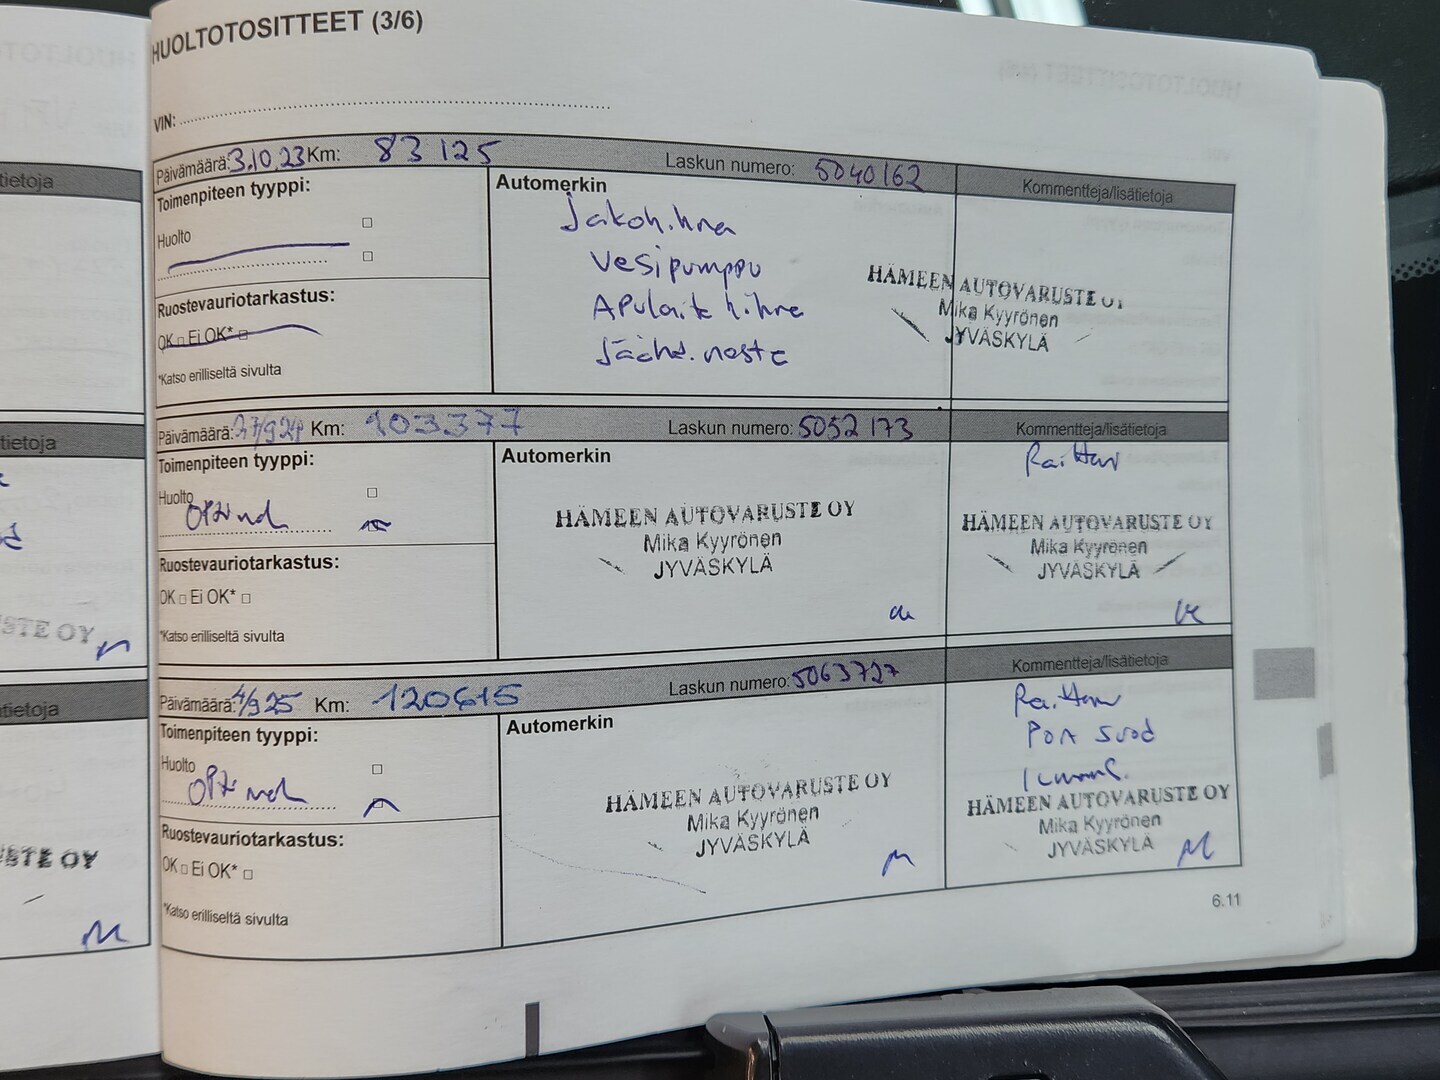 HUOLTOTOSITTEET (3/6)
VIN:
Päivämäärä: 3.10.23 Km: 83 125 Laskun numero: 5040162 Kommentteja/lisätietoja
Toimenpiteen tyyppi:
Automerkin
Huolto
Jakoh.hna
Vesipumppu
Apulait hihna
Jäähd. neste
Ruostevauriotarkastus:
OK □ Ei OK* □
*Katso erilliseltä sivulta
HÄMEEN AUTOVARUSTE OY
Mika Kyyrönen
JYVÄSKYLÄ
Päivämäärä: 27/9 24 Km: 103.377 Laskun numero: 5052 173 Kommentteja/lisätietoja
Toimenpiteen tyyppi:
Automerkin
Huolto
HÄMEEN AUTOVARUSTE OY
Mika Kyyrönen
JYVÄSKYLÄ
Ruostevauriotarkastus:
OK □ Ei OK* □
*Katso erilliseltä sivulta
HÄMEEN AUTOVARUSTE OY
Mika Kyyrönen
JYVÄSKYLÄ
Päivämäärä: 4/9 25 Km: 120615 Laskun numero: 5063727 Kommentteja/lisätietoja
Toimenpiteen tyyppi:
Automerkin
Huolto
HÄMEEN AUTOVARUSTE OY
Mika Kyyrönen
JYVÄSKYLÄ
Ruostevauriotarkastus:
OK □ Ei OK* □
*Katso erilliseltä sivulta
suod
HÄMEEN AUTOVARUSTE OY
Mika Kyyrönen
JYVÄSKYLÄ
6.11
tietoja
tietoja
STE OY
tietoja
USTE OY